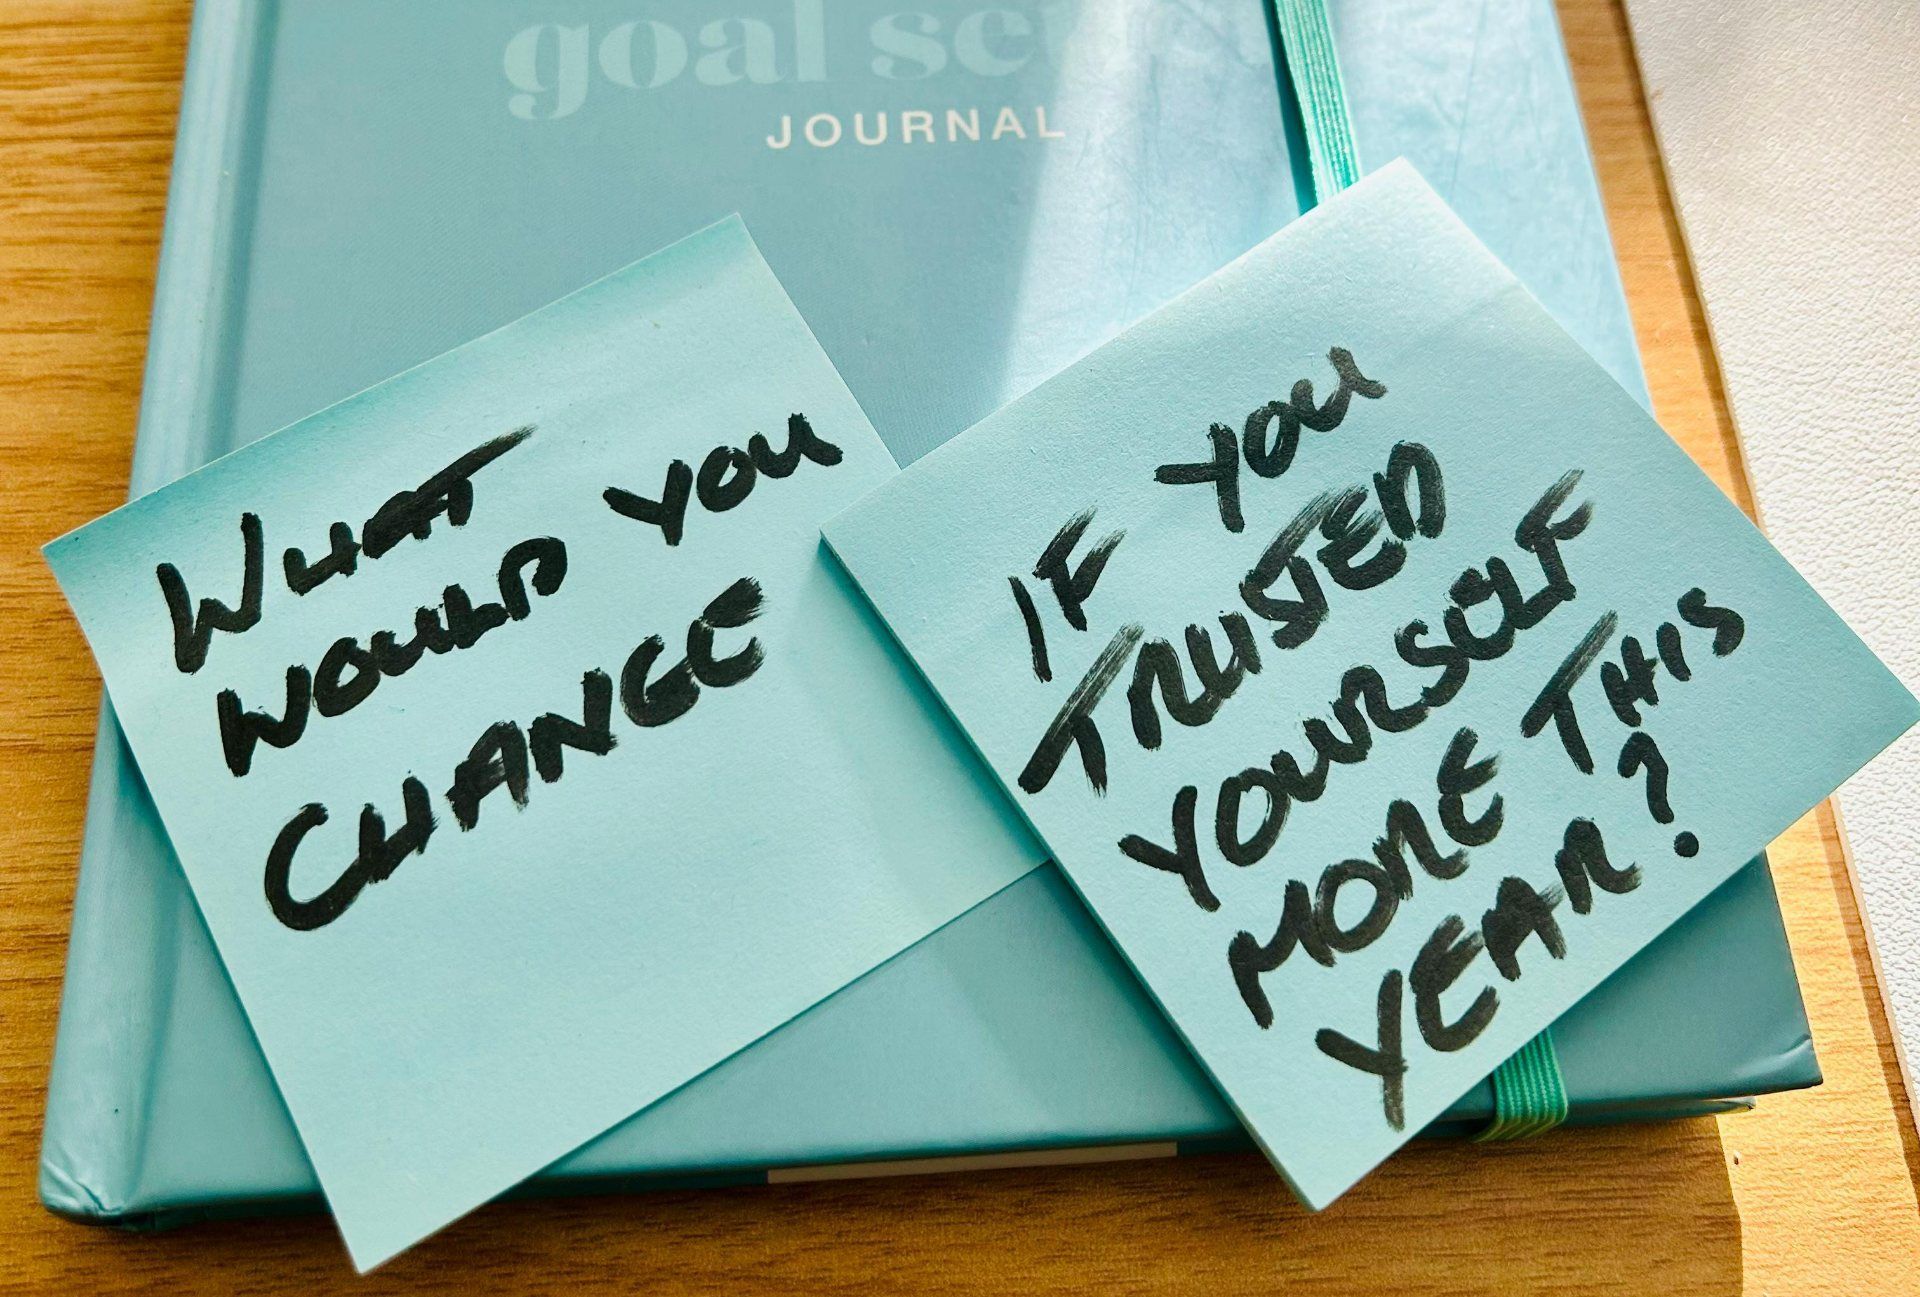 goal
JOURNAL
WHAT
WOULD YOU
CHANGE
IF YOU
TRUSTED
YOURSELF
MORE THIS
YEAR?